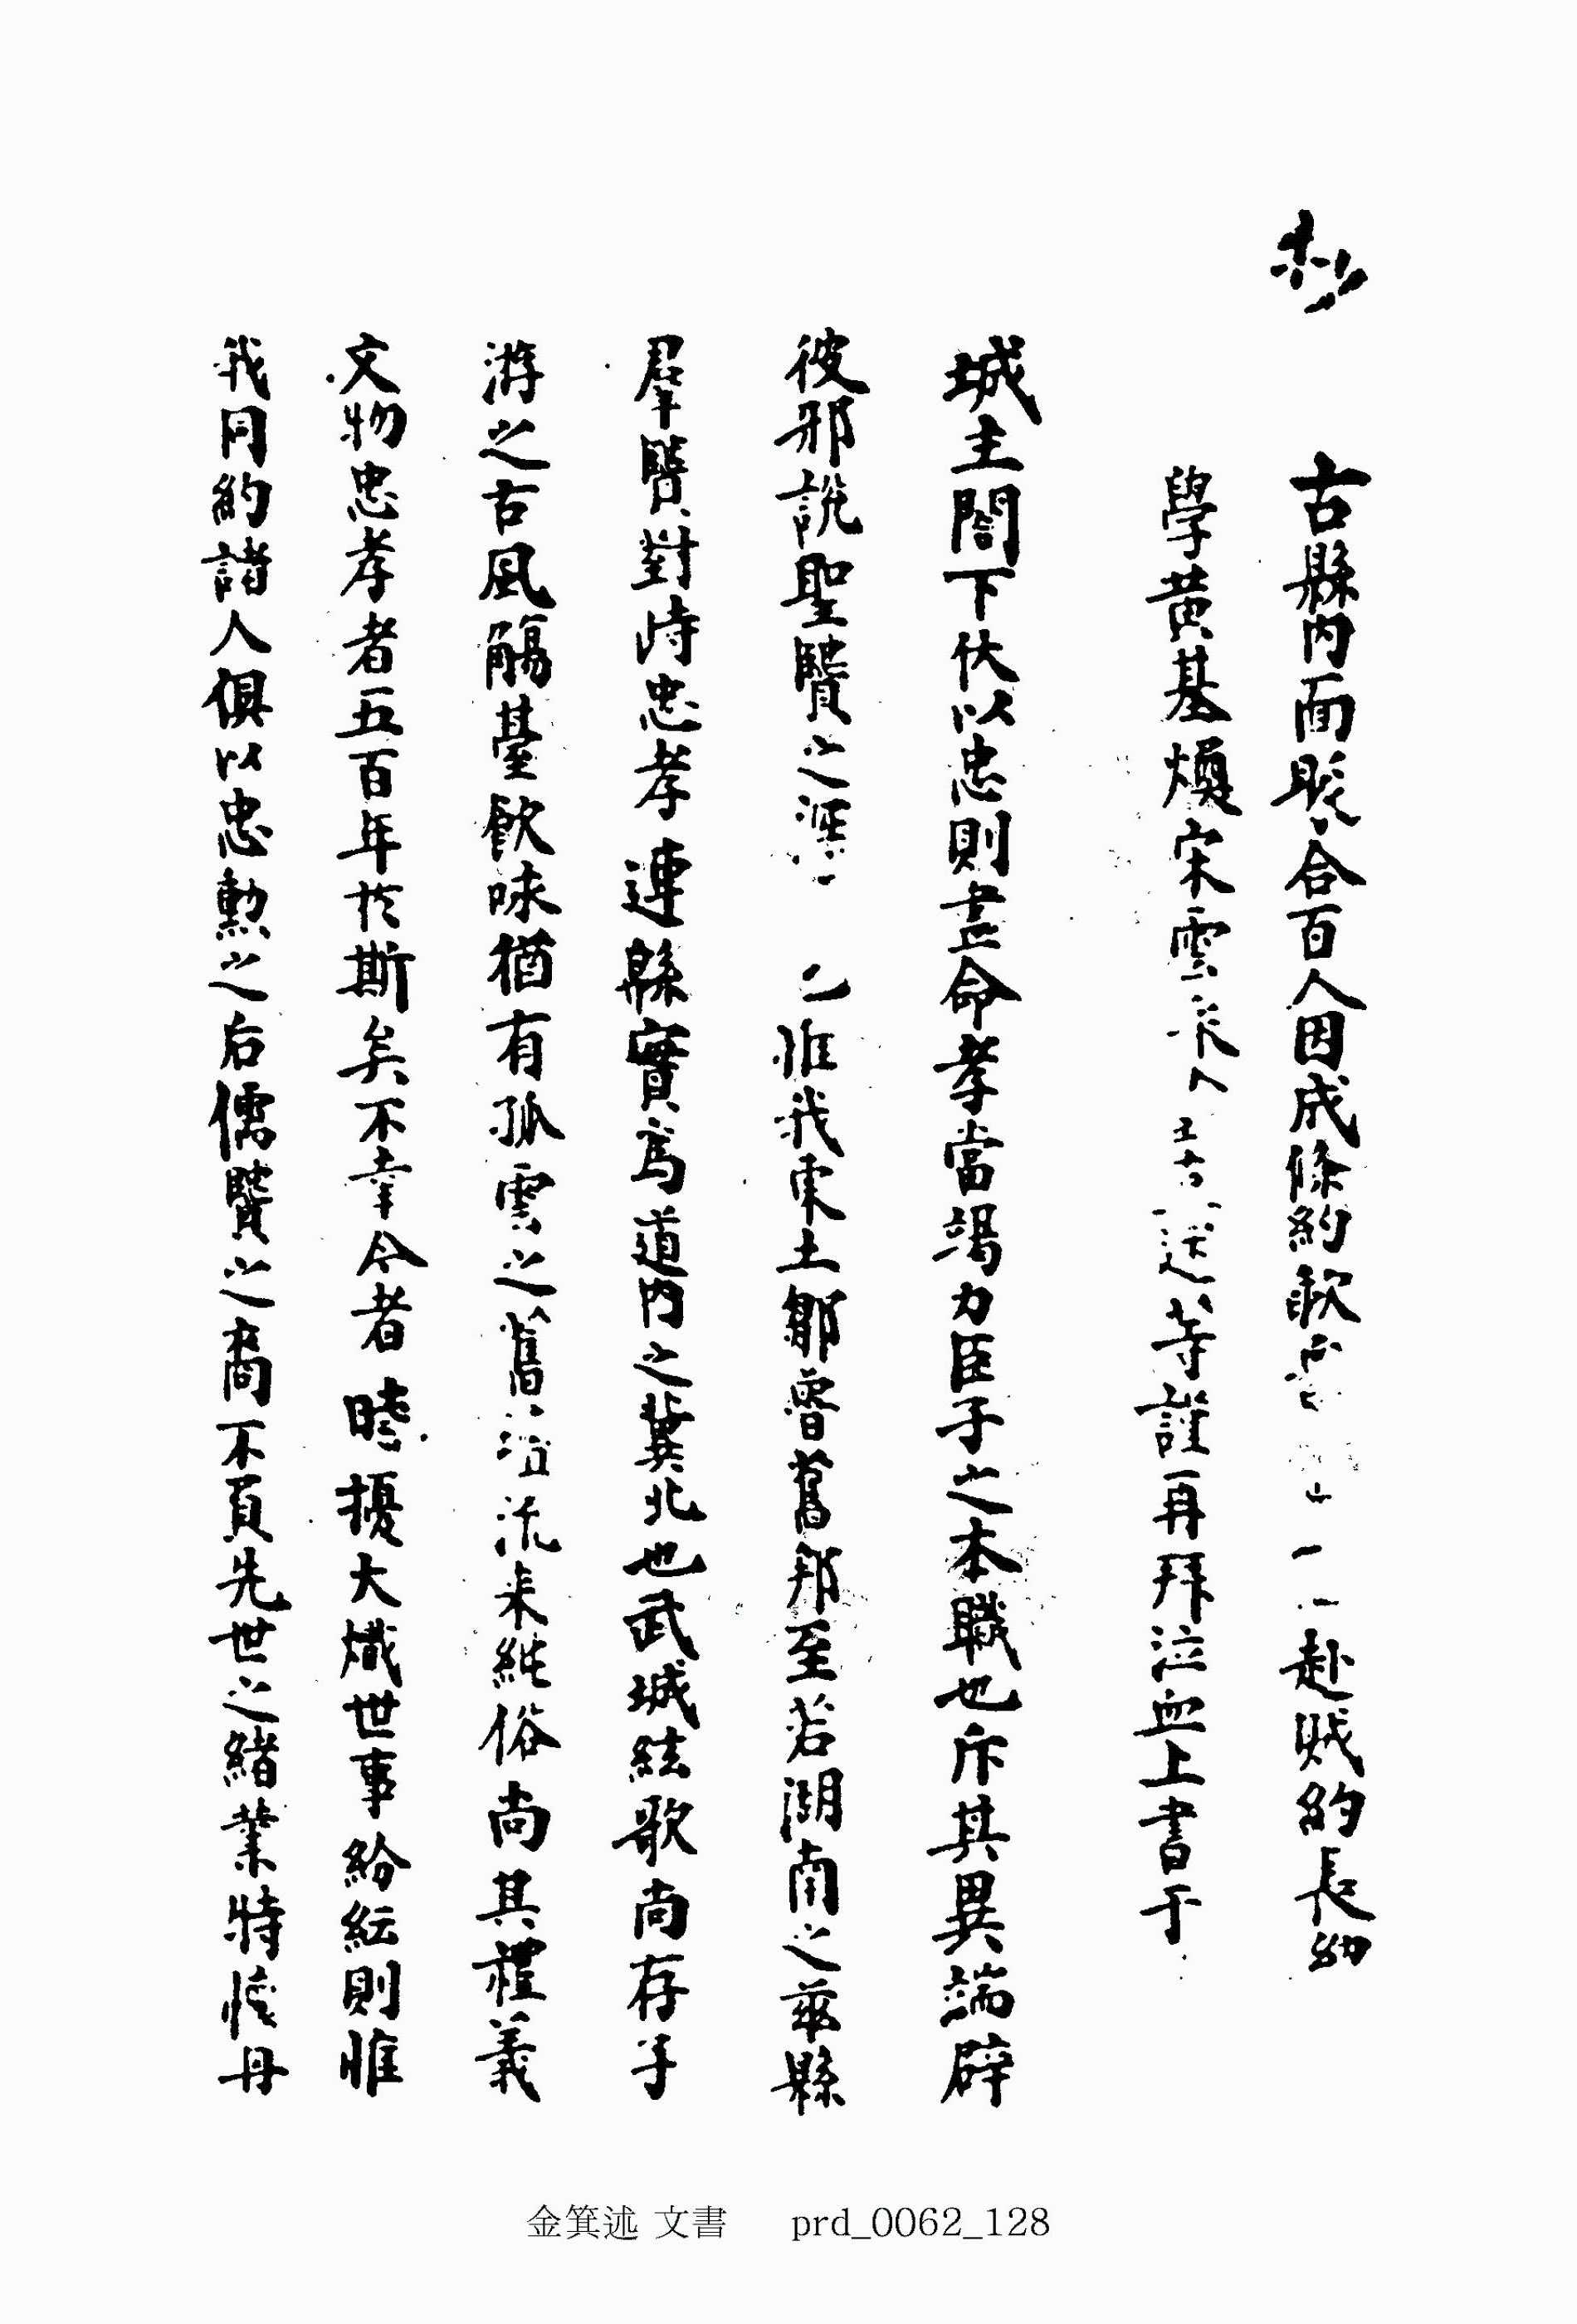 抄
古縣內面聚合百人因成條約歃 赴賊約長幼
學黃基煥宋雲 等謹再拜泣血上書于
城主閤下伏以忠則盡命孝當竭力臣子之本職也斥其異端辟
彼邪說聖賢之 惟我東土鄒魯舊邦至若湖南之玆縣
羣賢對峙忠孝連縣實爲道內之冀北也武城絃歌尚存子
游之古風觴臺飮咏猶有孤雲之舊 流來純俗尚其禮義
文物忠孝者五百年於斯矣不幸今者 時擾大熾世事紛紜則惟
我同約諸人俱以忠勳之后儒賢之裔不負先世之緖業特 丹
金箕述 文書 prd_0062_128